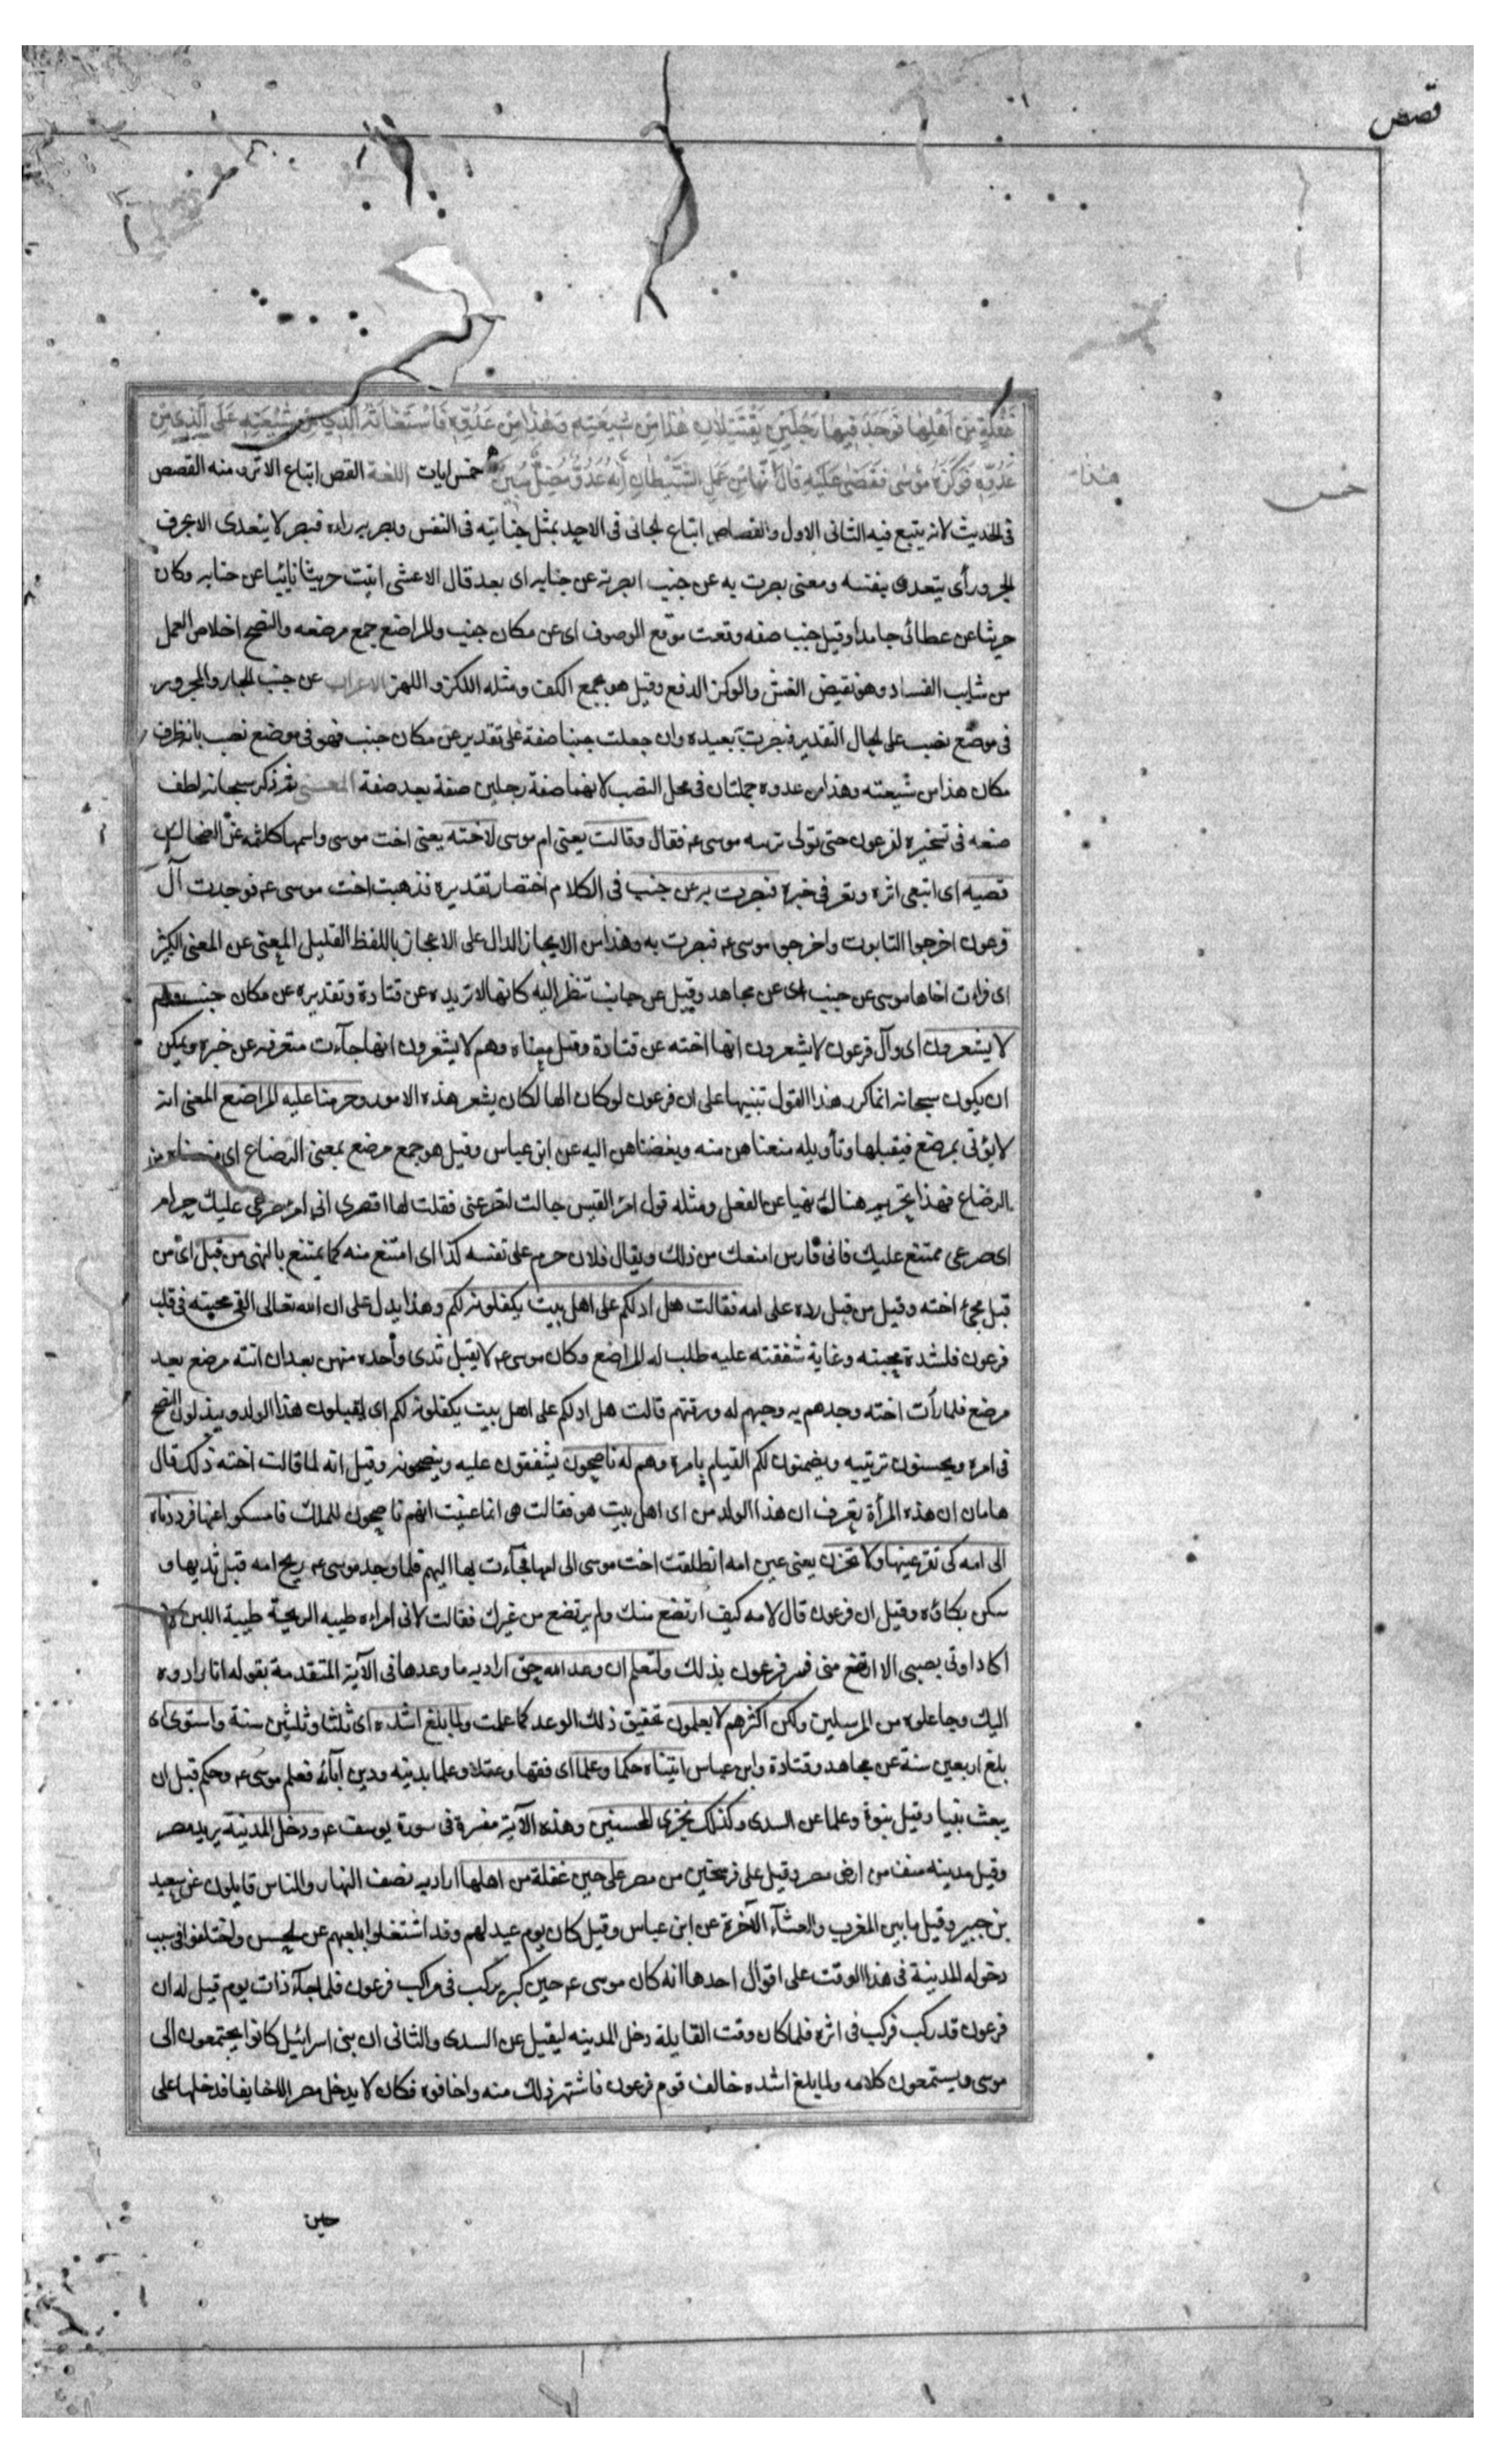 قصص
غَفْلَةٍ مِنْ اَهْلِهٰا فَوَجَدَ فِيهٰا رَجُلَيْنِ يَقْتَتِلٰانِ هٰذٰا مِنْ شِيعَتِهِ وَهٰذٰا مِنْ عَدُوِّهِ فَاسْتَغٰاثَهُ الَّذِي مِنْ شِيعَتِهِ عَلَى الَّذِي مِنْ
عَدُوِّهِ فَوَكَزَهُ مُوسٰى فَقَضٰى عَلَيْهِ قٰالَ هٰذٰا مِنْ عَمَلِ الشَّيْطٰانِ اِنَّهُ عَدُوٌّ مُضِلٌّ مُبِينٌ خمس ايات اللغة القص اتباع الاثر ومنه القصص
هذا
خمس
فى الحديث لانه يتبع فيه الثانى الاول والقصاص اتباع الجانى فى الاخذ بمثل جنايته فى النفس وبصر به رآه فبصر لا يتعدى الا بحرف
الجر ورأى يتعدى بنفسه ومعنى بصرت به عن جنب ابصرته عن جنابه اى بعد قال الاعشى اتيت حريثا نائيا عن جنابه وكان
حريثا عن عطائى جامدا وقيل جنب صفه وقعت موقع الموصوف اى عن مكان جنب والمراضع جمع مرضعه والنصح اخلاص العمل
من شايب الفساد وهو نقيض الغش والوكز الدفع وقيل هو بجمع الكف ومثله اللكز و اللهز الاعراب عن جنب الجار والمجرور
فى موضع نصب على الحال التقدير فبصرت به بعيده وان جعلت جنبا صفة على تقدير عن مكان جنب فهو فى موضع نصب بانه ظرف
مكان هذا من شيعته وهذا من عدوه جملتان فى محل النصب لانهما صفة رجلين صفة بعد صفة المعنى ثم ذكر سبحانه لطف
صنعه فى تسخيره لفرعون حتى تولى تربيه موسى عم فقال وقالت يعنى ام موسى لاخته يعنى اخت موسى واسمها كلثمه عن الضحاك
قصيه اى اتبعى اثره وتعرفى خبره فبصرت به عن جنب فى الكلام اختصار تقديره فذهبت اخت موسى عم فوجدت آل
فرعون اخرجوا التابوت واخرجوا موسى عم فبصرت به وهذا من الايجاز الدال على الاعجاز باللفظ القليل المعنى عن المعنى الكثير
اى فرات اخاها موسى عن جنب اى عن مجاهد وقيل عن جانب تنظر اليه كانها لا تريده عن قتادة وتقديره عن مكان جنب وهم
لا يشعرون اى وآل فرعون لا يشعرون انها اخته عن قتادة وقيل معناه وهم لا يشعرون انها جآءت متعرفه عن خبره ويمكن
ان يكون سبحانه انما كرر هذا القول تنبيها على ان فرعون لو كان الها لكان يشعر هذه الامور وحرمنا عليه المراضع المعنى انه
لا يؤتى بمرضع فيقبلها وتأويله منعناهن منه وبغضناهن اليه عن ابن عباس وقيل هو جمع مرضع بمعنى الرضاع اى منعناه من
الرضاع فهذا تحريم هنا لا نهيا عن الفعل ومثله قول امرئ القيس جالت لتصرعنى فقلت لها اقصرى انى امرء صرعى عليك حرام
اى صرعى ممتنع عليك فانى فارس امنعك من ذلك ويقال فلان حرم على نفسه كذا اى امتنع منه كما يمتنع بالنهى من قبل اى من
قبل مجئ اخته وقيل من قبل رده على امه فقالت هل ادلكم على اهل بيت يكفلونه لكم وهذا يدل على ان الله تعالى القى محبته فى قلب
فرعون فلشدة محبته وغاية شفقته عليه طلب له المراضع وكان موسى عم لا يقبل ثدى واحده منهن بعد ان اتته مرضع بعد
مرضع فلما رأت اخته وجدهم به وحبهم له ورقتهم قالت هل ادلكم على اهل بيت يكفلونه لكم اى يقبلون هذا الولد ويبذلون النصح
فى امره ويحسنون تربيته ويضمنون لكم القيام بامره وهم له ناصحون يشفقون عليه وينصحونه وقيل انه لما قالت اخته ذلك قال
هامان ان هذه المرأة تعرف ان هذا الولد من اى اهل بيت هو فقالت هى انما عنيت انهم ناصحون للملك فامسكوا عنها فرددناه
الى امه كى تقر عينها ولا تحزن يعنى عين امه انطلقت اخت موسى الى امها فجآءت بها اليهم فلما وجد موسى عم ريح امه قبل ثديها و
سكن بكاؤه وقيل ان فرعون قال لامه كيف ارتضع منك ولم يرتضع من غيرك فقالت لانى امراءه طيبه الريحة طيبة اللبن لا
اكاد اوتى بصبى الا ارتضع منى فسر فرعون بذلك ولتعلم ان وعد الله حق اراد به ما وعدها فى الآية المتقدمة بقوله انا رادوه
اليك وجاعلوه من المرسلين ولكن اكثرهم لا يعلمون تحقيق ذلك الوعد كما علمت ولما بلغ اشده اى ثلثا وثلثين سنة واستوى اى
بلغ اربعين سنة عن مجاهد وقتادة وابن عباس اتيناه حكما وعلما اى فقها وعقلا وعلما بدينه ودين آبآئه فعلم موسى عم وحكم قبل ان
يبعث نبيا وقيل نبوة وعلما عن السدى وكذلك نجزى المحسنين وهذه الآية مفسرة فى سورة يوسف عم ودخل المدينة يريد مصر
وقيل مدينه منف من ارض مصر وقيل على فرسخين من مصر على حين غفلة من اهلها اراد به نصف النهار والناس قايلون عن سعيد
بن جبير وقيل ما بين المغرب والعشآء الآخرة عن ابن عباس وقيل كان يوم عيد لهم وقد اشتغلوا بلعبهم عن الحسن واختلفوا فى سبب
دخوله المدينة فى هذا الوقت على اقوال احدها انه كان موسى عم حين كبر يركب فى مراكب فرعون فلما جآء ذات يوم قيل له ان
فرعون قد ركب فركب فى اثره فلما كان وقت القايلة دخل المدينه ليقيل عن السدى والثانى ان بنى اسرائيل كانوا يجتمعون الى
موسى ويستمعون كلامه ولما بلغ اشده خالف قوم فرعون فاشتهر ذلك منه واخافوه فكان لا يدخل مصر الا خايفا فدخلها على
حين